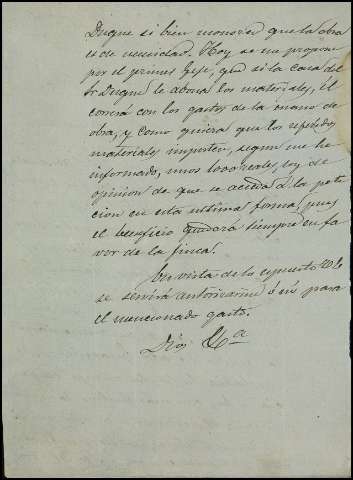 Duque si bien reconoce que la obra
es de necesidad. Hoy se me propone
por el primer Gefe, que si la casa del
Sr Duque le abona los materiales, él
correrá con los gastos de la mano de
obra, y como quiera que los repetidos
materiales importen, segun me he
informado, unos 1000 reales, soy de
opinion de que se acceda á la peti
cion en esta ultima forma, pues
el beneficio quedará siempre en fa
vor de la finca.
En vista de lo espuesto V.E.
se servirá autorizarme ó nó para
el mencionado gasto.
Dios &a